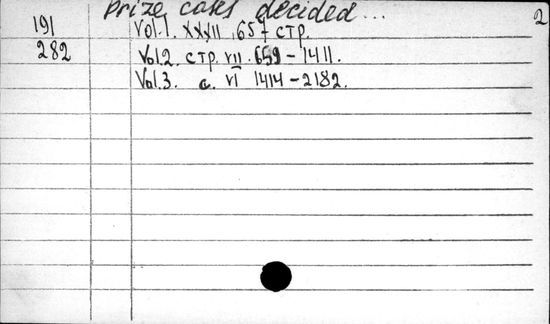 prize cases decided... 2
191 Vol.1. XXXII, 657 стр.
282 Vol.2. стр. VII. 659-1411.
Vol.3. с. VI 1414-2182.